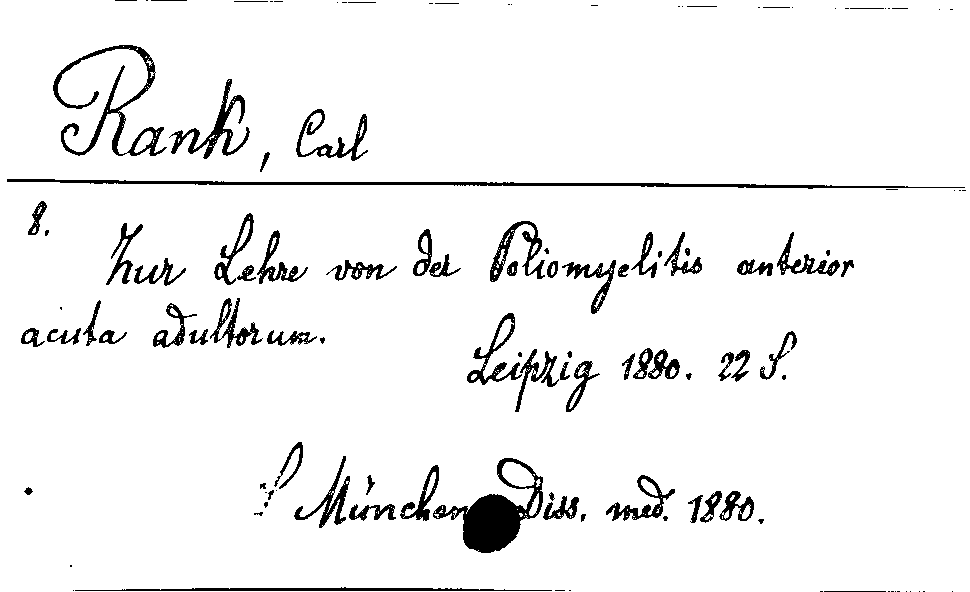 Rank, Carl
8.
Zur Lehre von der Poliomyelitis anterior
acuta adultorum.
Leipzig 1880. 22 S.
München Diss. med. 1880.